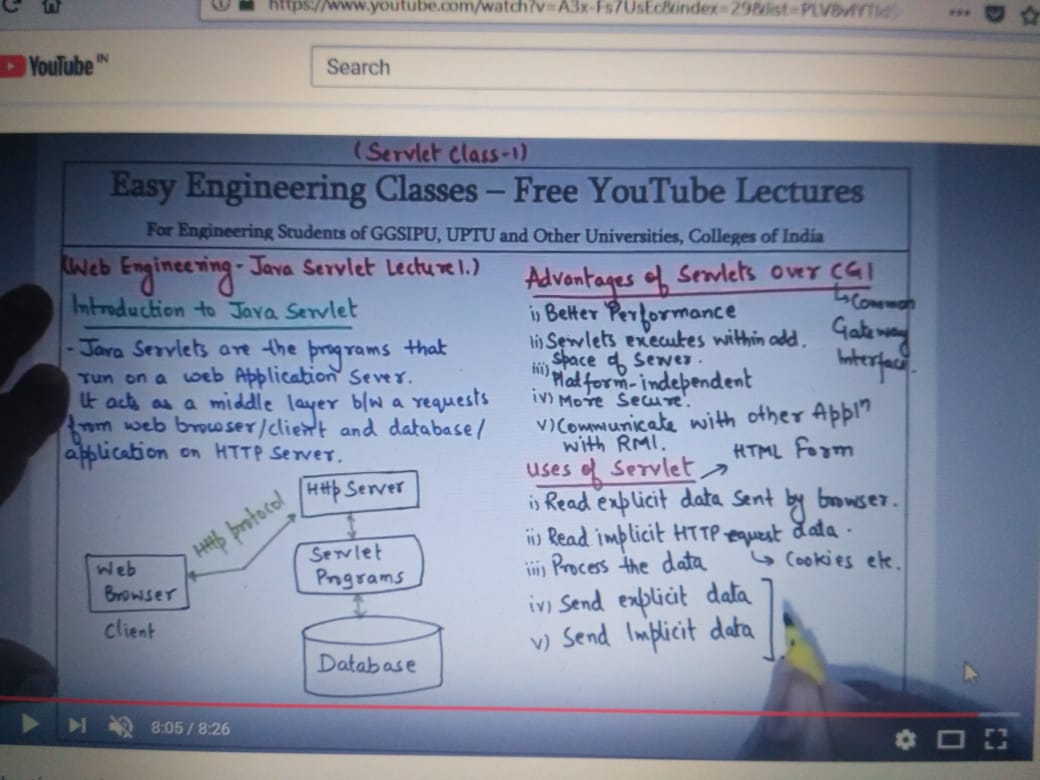 https://www.youtube.com/watch?v=A3x-Fs7UsEc&index=29&list=PLV8vIYTIdS
YouTube IN
Search
(Servlet Class-1)
Easy Engineering Classes – Free YouTube Lectures
For Engineering Students of GGSIPU, UPTU and Other Universities, Colleges of India
(Web Engineering - Java Servlet Lecture 1.)
Introduction to Java Servlet
- Java Servlets are the programs that
run on a web Application Sever.
It acts as a middle layer b/w a requests
from web browser/client and database/
application on HTTP Server.
Http Server
Http protocol
Servlet
Programs
Web
Browser
Client
Database
Advantages of Servlets over CGI
↳ Common
Gateway
Interface.
i) Better Performance
ii) Servlets executes within add.
space of Server.
iii) Platform-independent
iv) More Secure.
v) Communicate with other Applⁿ
with RMI.
Uses of Servlet → HTML Form
i) Read explicit data sent by browser.
ii) Read implicit HTTP request data.
↳ Cookies etc.
iii) Process the data
iv) Send explicit data
v) Send Implicit data
8:05 / 8:26